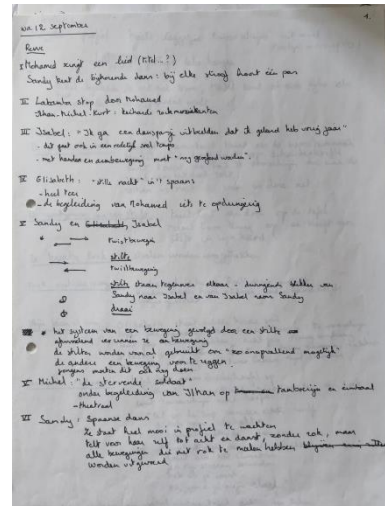 1.
wa 12 september
Revue
I Mohamed zingt een lied (titel...?)
Sandy kent de bijhorende dans: bij elke stroof hoort één pas
II Labamba stop door Mohamed
Ilhan. Michel. Kurt: keiharde rockmuzikanten
III Isabel: "Ik ga een danspasje uitbeelden dat ik geleerd heb vorig jaar"
- dit gaat ook in een redelijk snel tempo
- met handen en armbeweging met "
IV Elisabeth: "stille nacht" in 't spaans
- heel teer
- de begeleiding van Mohamed iets te opdringerig
V Sandy en Isabel
twistbeweging
stilte
twistbeweging
stilte staan tegenover elkaar - dwingende blikken van
Sandy naar Isabel en van Isabel naar Sandy
draai
het systeem van een beweging gevolgd door een stilte
afwisselend verzinnen ze een beweging
de stiltes worden vooral gebruikt om "zo onopvallend mogelijk"
de andere een beweging voor te zeggen.
jongens maken dit ook nog doen
V Michel: "de stervende soldaat"
onder begeleiding van Ilhan op tamboerijn en cimbaal
- theatraal
VI Sandy: Spaanse dans
Ze staat heel mooi in profiel te wachten
telt voor haar zelf tot acht en danst, zonder rok, maar
alle bewegingen die met rok te maken hebben
worden uitgevoerd